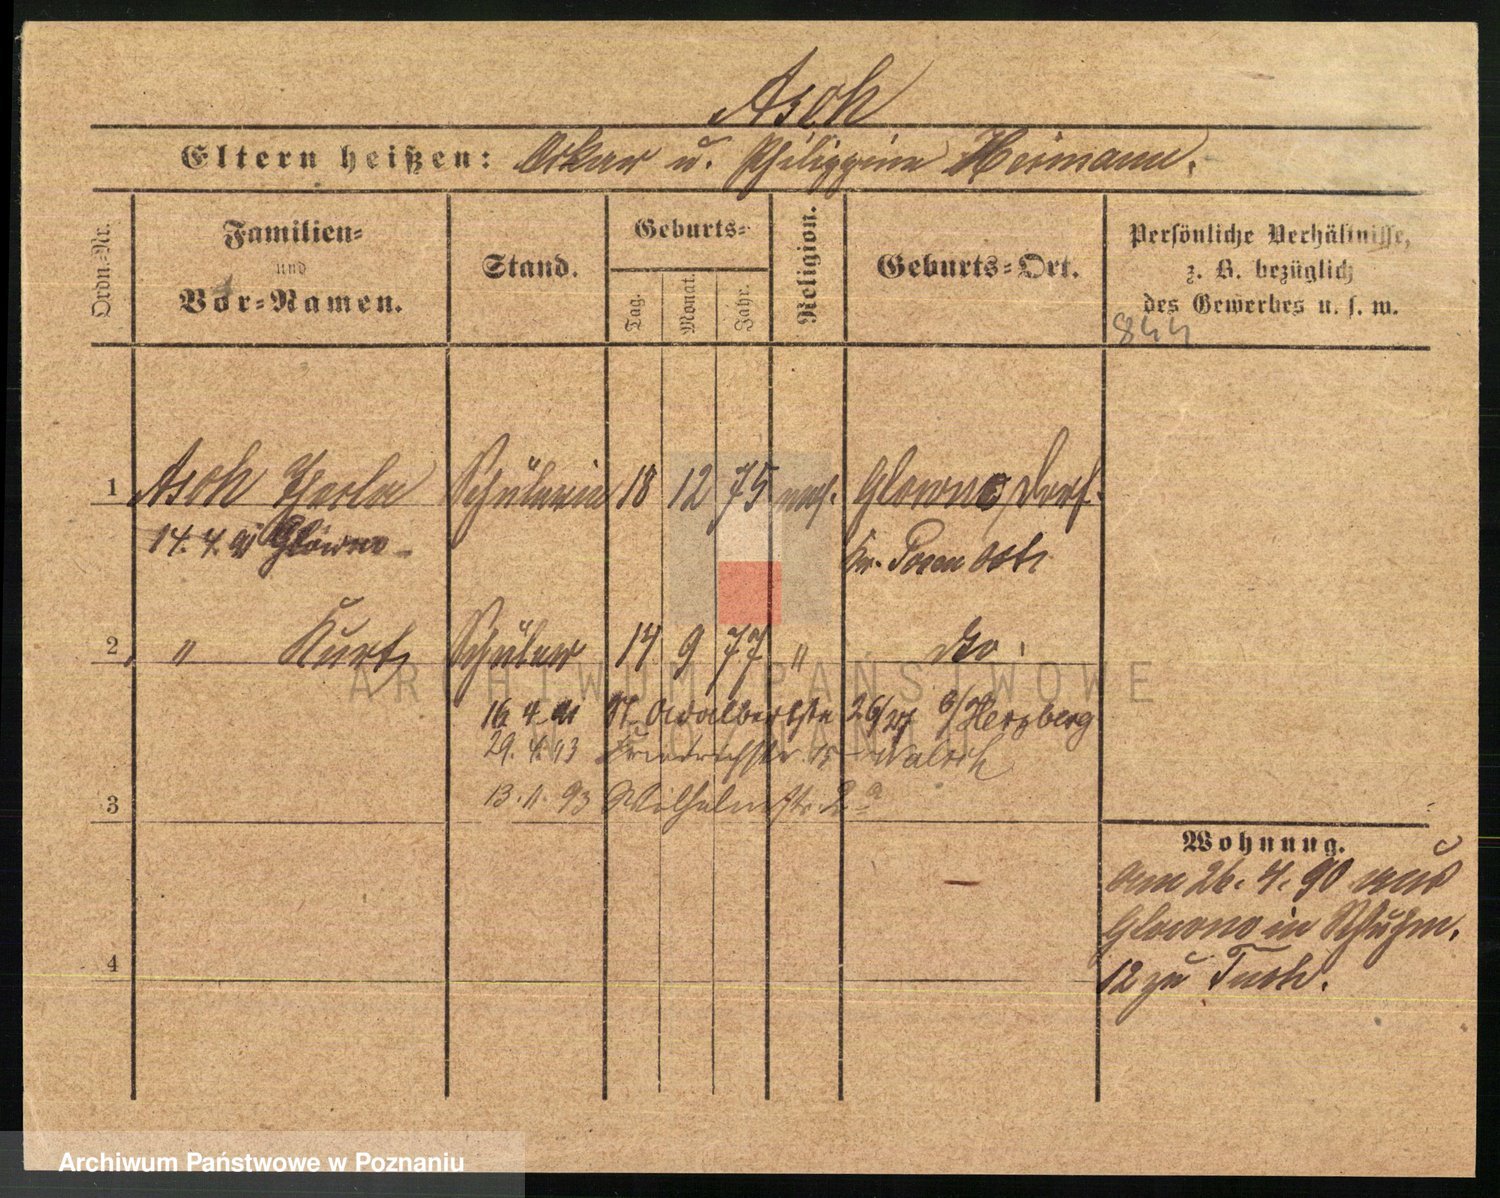 Asch
Eltern heißen: Oskar u. Philippine Heimann.
Ordn.-Nr.
Familien-
und
Vor-Namen.
Stand.
Geburts-
Tag.
Monat.
Jahr.
Religion.
Geburts-Ort.
Persönliche Verhältnisse,
z. B. bezüglich
des Gewerbes u. s. w.
844
1 Asch Schülerin 18 12 75 mos. Glowno Dorf.
14. 4. 91 Glowno Kr. Posen Ost.
2 " Kurt Schüler 14 9 77 " do.
ARCHIWUM PAŃSTWOWE
W POZNANIU
16 4 91 St. Adalbertstr 26/27 b/ Herzberg
29. 4. 93 Friedrichstr. 
13. 11. 93 Wilhelmstr. 2a
3
Wohnung.
am 26. 4. 90 aus
Glowno in Schuhm.
12 zu
4
Archiwum Państwowe w Poznaniu